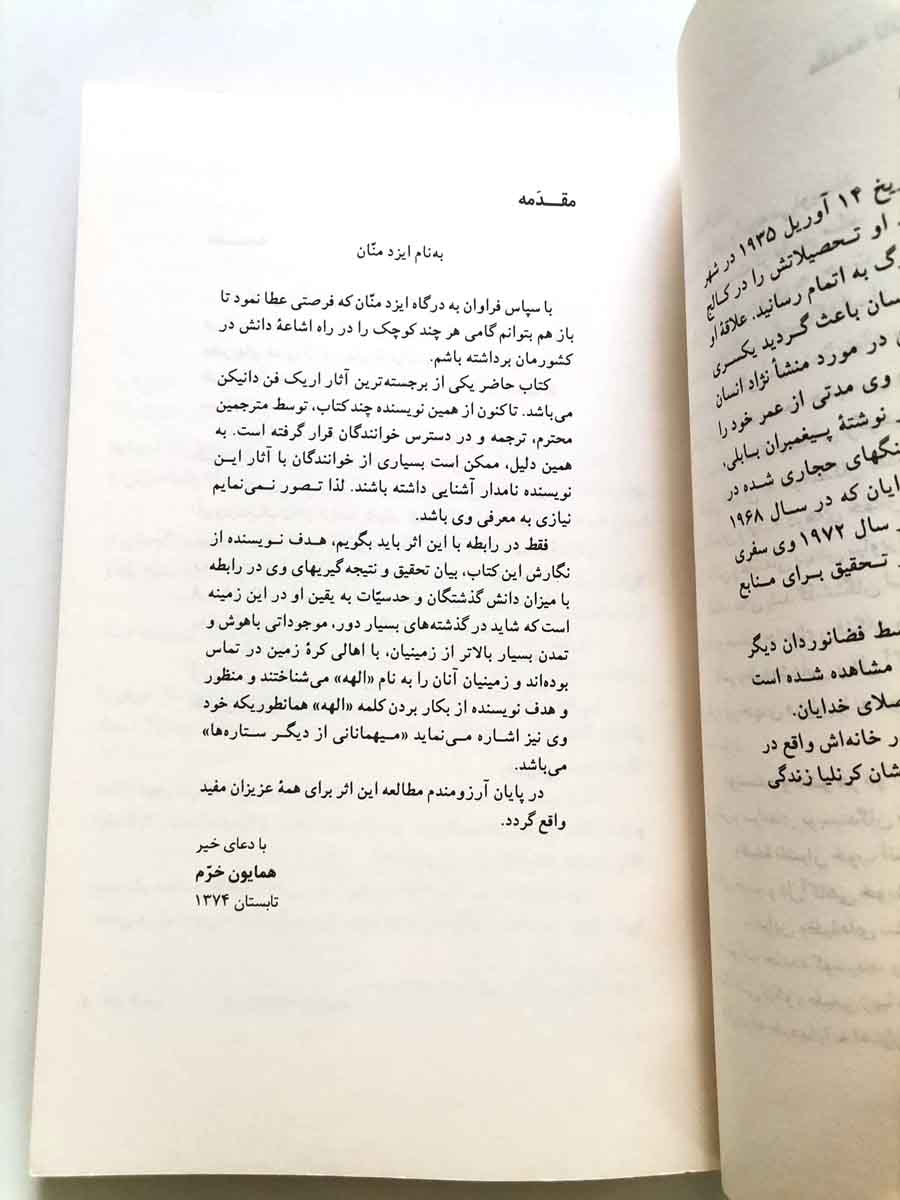 مقـــدَمه
به‌نام ایزد منّان
با سپاس فراوان به درگاه ایزد منّان که فرصتی عطا نمود تا
باز هم بتوانم گامی هر چند کوچک را در راه اشاعهٔ دانش در
کشورمان برداشته باشم.
کتاب حاضر یکی از برجسته‌ترین آثار اریک فن دانیکن
می‌باشد. تاکنون از همین نویسنده چند کتاب، توسط مترجمین
محترم، ترجمه و در دسترس خوانندگان قرار گرفته است. به
همین دلیل، ممکن است بسیاری از خوانندگان با آثار این
نویسنده نامدار آشنایی داشته باشند. لذا تصور نمی‌نمایم
نیازی به معرفی وی باشد.
فقط در رابطه با این اثر باید بگویم، هدف نویسنده از
نگارش این کتاب، بیان تحقیق و نتیجه‌گیریهای وی در رابطه
با میزان دانش گذشتگان و حدسیّات به یقین او در این زمینه
است که شاید در گذشته‌های بسیار دور، موجوداتی باهوش و
تمدن بسیار بالاتر از زمینیان، با اهالی کرهٔ زمین در تماس
بوده‌اند و زمینیان آنان را به نام «الهه» می‌شناختند و منظور
و هدف نویسنده از بکار بردن کلمه «الهه» همانطوریکه خود
وی نیز اشاره می‌نماید «میهمانانی از دیگر ستاره‌ها»
می‌باشد.
در پایان آرزومندم مطالعه این اثر برای همهٔ عزیزان مفید
واقع گردد.
با دعای خیر
همایون خرّم
تابستان ۱۳۷۴
۱۴ آوریل ۱۹۳۵ در شهر
او تحصیلاتش را در کالج
به اتمام رسانید. علاقهٔ او
باعث گردید یکسری
در مورد منشأ نژاد انسان
وی مدتی از عمر خود را
نوشتهٔ پیغمبران بابلی،
حجاری شده در
که در سال ۱۹۶۸
سال ۱۹۷۲ وی سفری
تحقیق برای منابع
فضانوردان دیگر
مشاهده شده است
خدایان.
خانه‌اش واقع در
کرنلیا زندگی